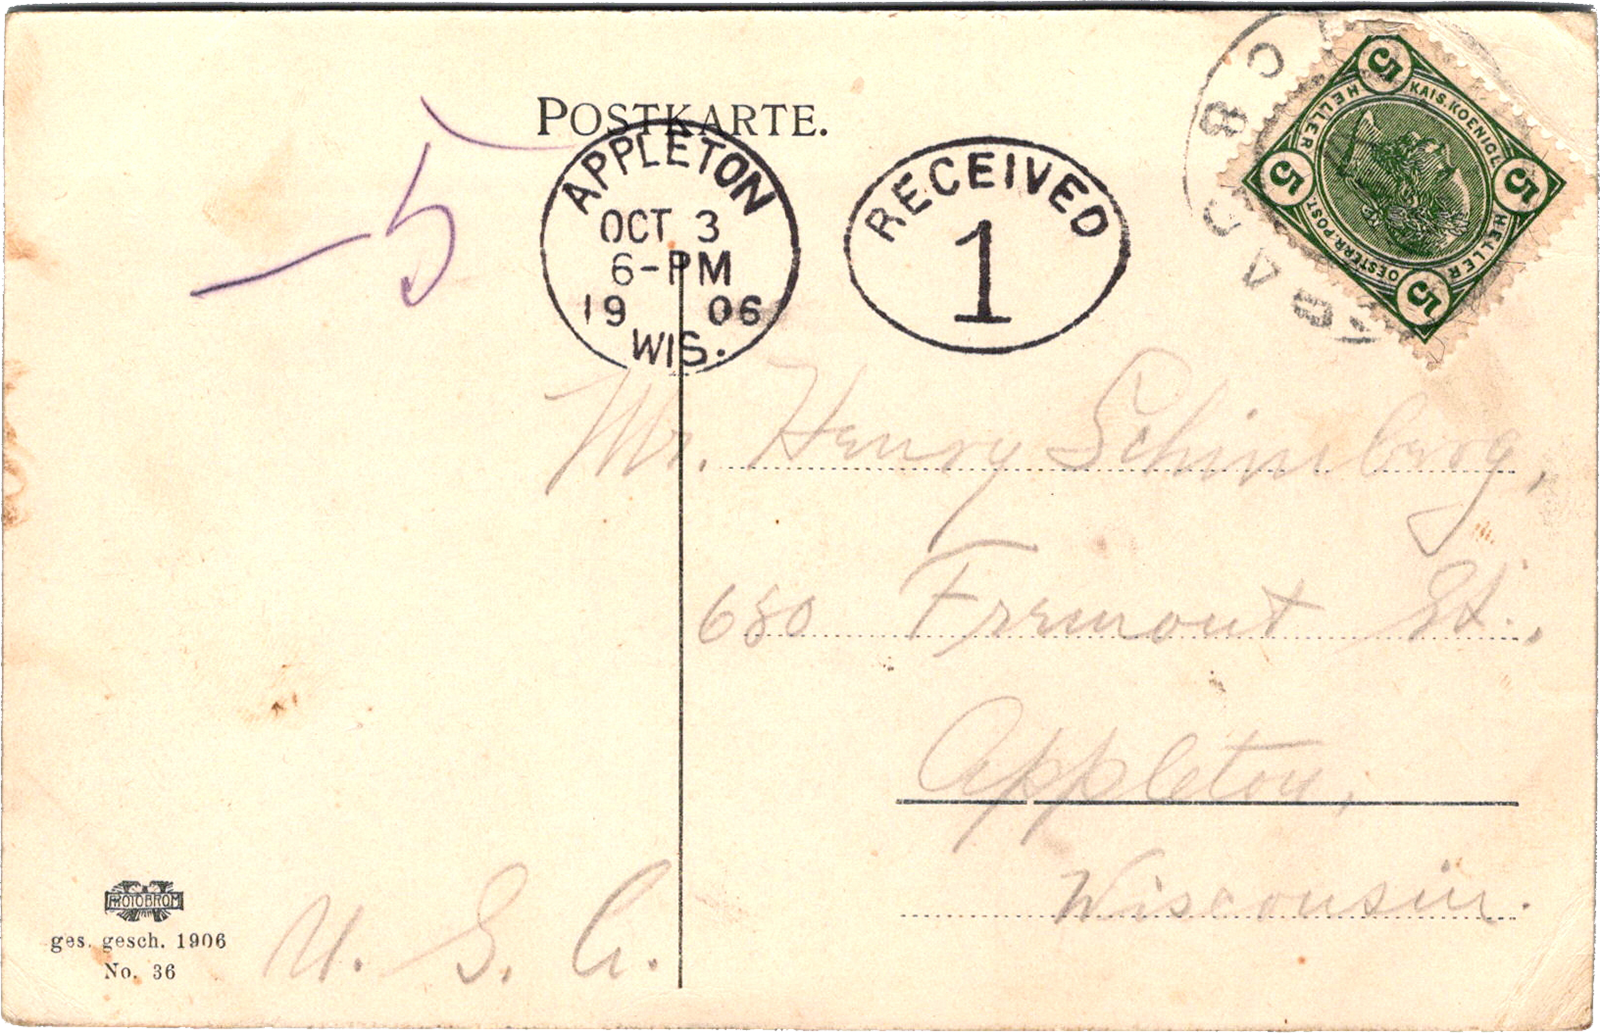 POSTKARTE.
APPLETON
OCT 3
6-PM
19 06
WIS.
RECEIVED
1
5
KAIS. KOENIGL.
5
HELLER
5
OESTERR. POST
5
HELLER
-5
Mr. Henry Schimberg,
680 Fremont St.,
Appleton,
Wisconsin.
U. S. A.
PHOTOBROM
ges. gesch. 1906
No. 36